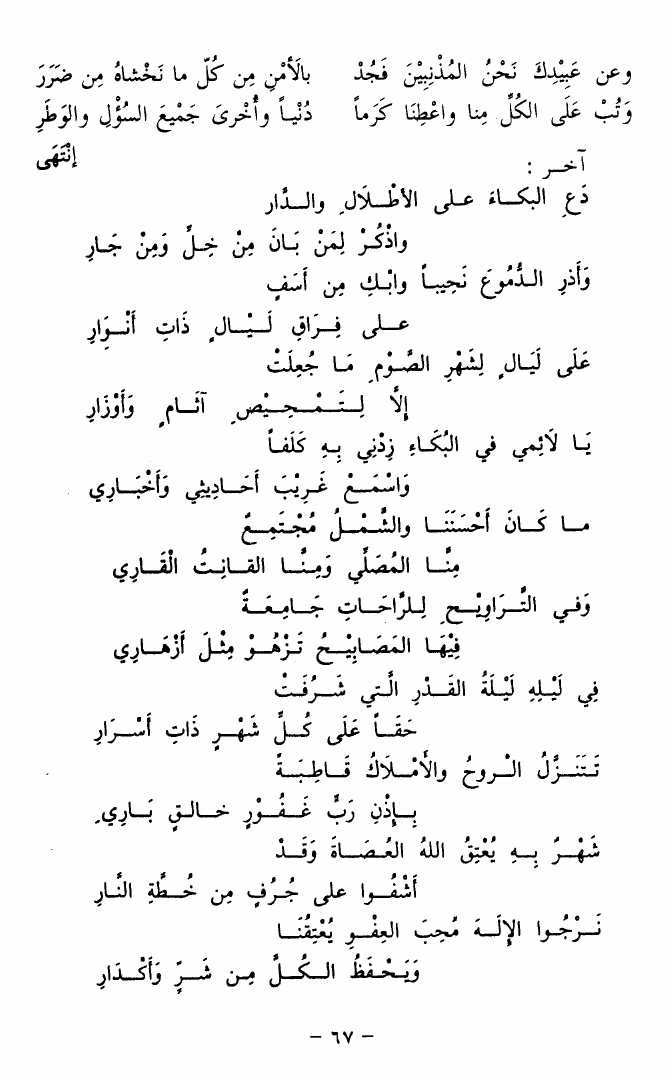 وعن عَبِيْدِكَ نَحْنُ المُذْنِبِيْنَ فَجُدْ بالأَمْنِ مِن كُلِّ ما نَخْشاهُ مِن ضَرَرَ
وَتُبْ عَلَى الكُلِّ مِنا واعْطِنَا كَرَماً دُنْياً وأُخْرىَ جَمْيعَ السُؤْلِ والوَطَرِ
إنْتَهَى
آخر :
دَعِ البكاءَ على الأطْلَالِ والدَّار
واذْكُرْ لِمَنْ بَانَ مِنْ خِلٍّ وَمِنْ جَارِ
وَأَذرِ الدُّمُوعَ نَحِيباً وابْكِ مِن أسَفٍ
على فِرَاقِ لَيْالٍ ذَاتِ أنْوَارِ
عَلَى لَيَالٍ لِشَهْرِ الصَّوْمِ مَا جُعِلَتْ
إلَّا لِتَمْحِيْصِ آثَامٍ وَأوْزَارِ
يَا لَائِمي في البُكَاءِ زِدْنِي بِهِ كَلَفاً
وَاسْمَعْ غَرِيْبَ أَحَادِيثي وَأخْبَارِي
ما كَانَ أحْسَنَنَا والشَّمْلُ مُجْتَمِعٌ
مِنَّا المُصَلِّي وَمِنَّا القانِتُ الْقَارِي
وَفي التَّرَاوِيْحِ لِلرَّاحَاتِ جَامِعَةٌ
فِيْهَا المَصَابِيْحُ تَزْهُوْ مِثْلَ أزْهَارِي
فِي لَيْلِهِ لَيْلَةُ القَدْرِ الَّتي شَرُفَتْ
حَقَاً عَلَى كُلِّ شَهْرٍ ذَاتِ أسْرَارِ
تَتَنَزَّلُ الروحُ والأمْلَاكُ قَاطِبَةً
بِإذْنِ رَبٍّ غَفُوْرٍ خالقٍ بَارِي
شَهْرٌ بِهِ يُعْتِقُ اللهُ العُصَاةَ وَقَدْ
أَشْفُوا على جُرُفٍ مِن خُطَّةِ النَّارِ
نَرْجُوا الإلَهَ مُحِبَ العِفْوِ يُعْتِقُنَا
وَيَحْفَظُ الكُلَّ مِن شَرٍّ وَأكْدَارِ
- ٦٧ -